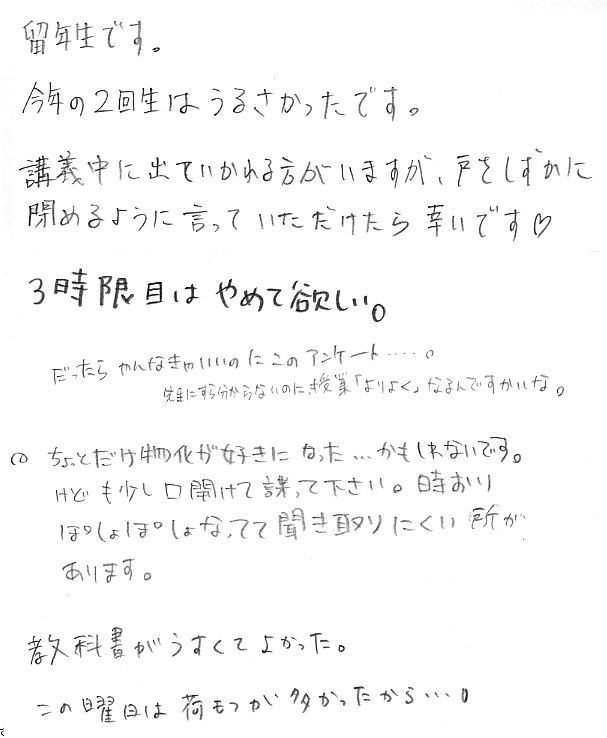 留年生です。
今年の2回生はうるさかったです。
講義中に出ていかれる方がいますが、戸をしずかに
閉めるように言っていただけたら幸いです♡
3時限目はやめて欲しい。
だったらやんなきゃいいのにこのアンケート‥‥。
先生にすら分からないのに、授業「よりよく」なるんですかいな。
ちょっとだけ物化が好きになった…かもしれないです。
けども少し口開けて課って下さい。時おり
ぽしょぽしょなってて聞き取りにくい所が
あります。
教科書がうすくてよかった。
この曜日は荷もつが多かったから…。